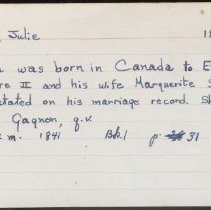 , Julie 18
n was born in Canada to E
re II and his wife Marguerite S
stated on his marriage record. Sh
Gagnon, q.v.
m. 1841 Bk.1 p. 31